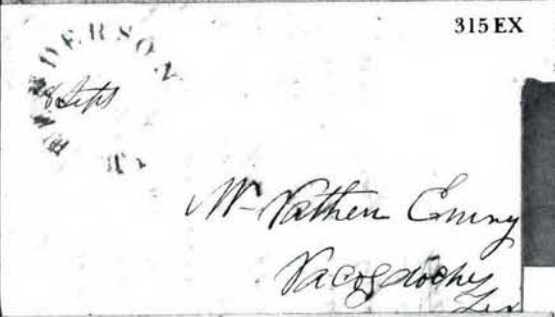 315 EX
HENDERSON
8 Sept
Mr Nathen
Nacogdoches
Tex